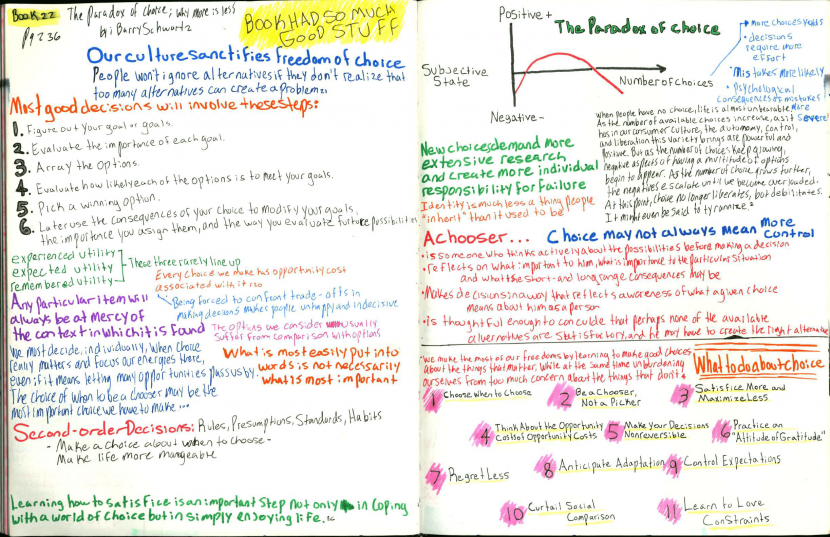 Book 22
The Paradox of Choice; why more is less
by: Barry Schwartz
Pg 236
BOOK HAD SO MUCH
GOOD STUFF
Our culture sanctifies freedom of choice
People won't ignore alternatives if they don't realize that
too many alternatives can create a problem
Most good decisions will involve these steps:
1. Figure out your goal or goals.
2. Evaluate the importance of each goal.
3. Array the options.
4. Evaluate how likely each of the options is to meet your goals.
5. Pick a winning option.
6. Later use the consequences of your choice to modify your goals,
the importance you assign them, and the way you evaluate future possibilities
experienced utility
expected utility
remembered utility
These three rarely line up
Every choice we make has opportunity cost
associated with it
Any particular item will
always be at mercy of
the context in which it is found
Being forced to confront trade-offs in
making decisions makes people unhappy and indecisive
The options we consider usually
suffer from comparison with options
We must decide, individually, when choice
really matters and focus our energies there,
even if it means letting many opportunities pass us by.
The choice of when to be a chooser may be the
most important choice we have to make...
What is most easily put into
words is not necessarily
what is most important
Second-order Decisions: Rules, Presumptions, Standards, Habits
- Make a choice about when to choose -
Make life more mangeable
Learning how to satisfice is an important step not only in coping
with a world of choice but in simply enjoying life.
Positive +
The Paradox of choice
Subjective
State
Number of choices
Negative -
more choices yields
• decisions
require more
effort
• Mistakes more likely
• Psychological
consequences of mistakes
More
severe
When people have no choice, life is almost unbearable
As the number of available choices increase, as it
has in our consumer culture, the autonomy, control,
and liberation this variety brings are powerful and
positive. But as the number of choices keep growing,
negative aspects of having a multitude of options
begin to appear. As the number of choice grows further,
the negatives escalate until we become overloaded.
At this point, choice no longer liberates, but debilitates.
It might even be said to tyrannize.
New choices demand more
extensive research
and create more individual
responsibility for failure
Identity is much less a thing people
"inherit" than it used to be
A chooser...
Choice may not always mean more
control
• is someone who thinks actively about the possibilities before making a decision
• reflects on what important to him, what is importance to the particular situation
and what the short- and long range consequences may be
• Makes decisions in a way that reflects awareness of what a given choice
means about him as a person
• Is thoughtful enough to conculde that perhaps none of the available
alvernatives are satisfactory, and he may have to create the right alternative
"We make the most of our freedoms by learning to make good choices
about the things that matter, while at the same time unburdening
ourselves from too much concern about the things that don't"
What to do about choice
1 Choose When to Choose
2 Be a Chooser,
Not a Picker
3 Satisfice More and
Maximize Less
4 Think About the Opportunity
Costs of Opportunity Costs
5 Make Your Decisions
Nonreversible
6 Practice an
"Attitude of Gratitude"
7 Regret Less
8 Anticipate Adaptation
9 Control Expectations
10 Curtail Social
Comparison
11 Learn to Love
Constraints